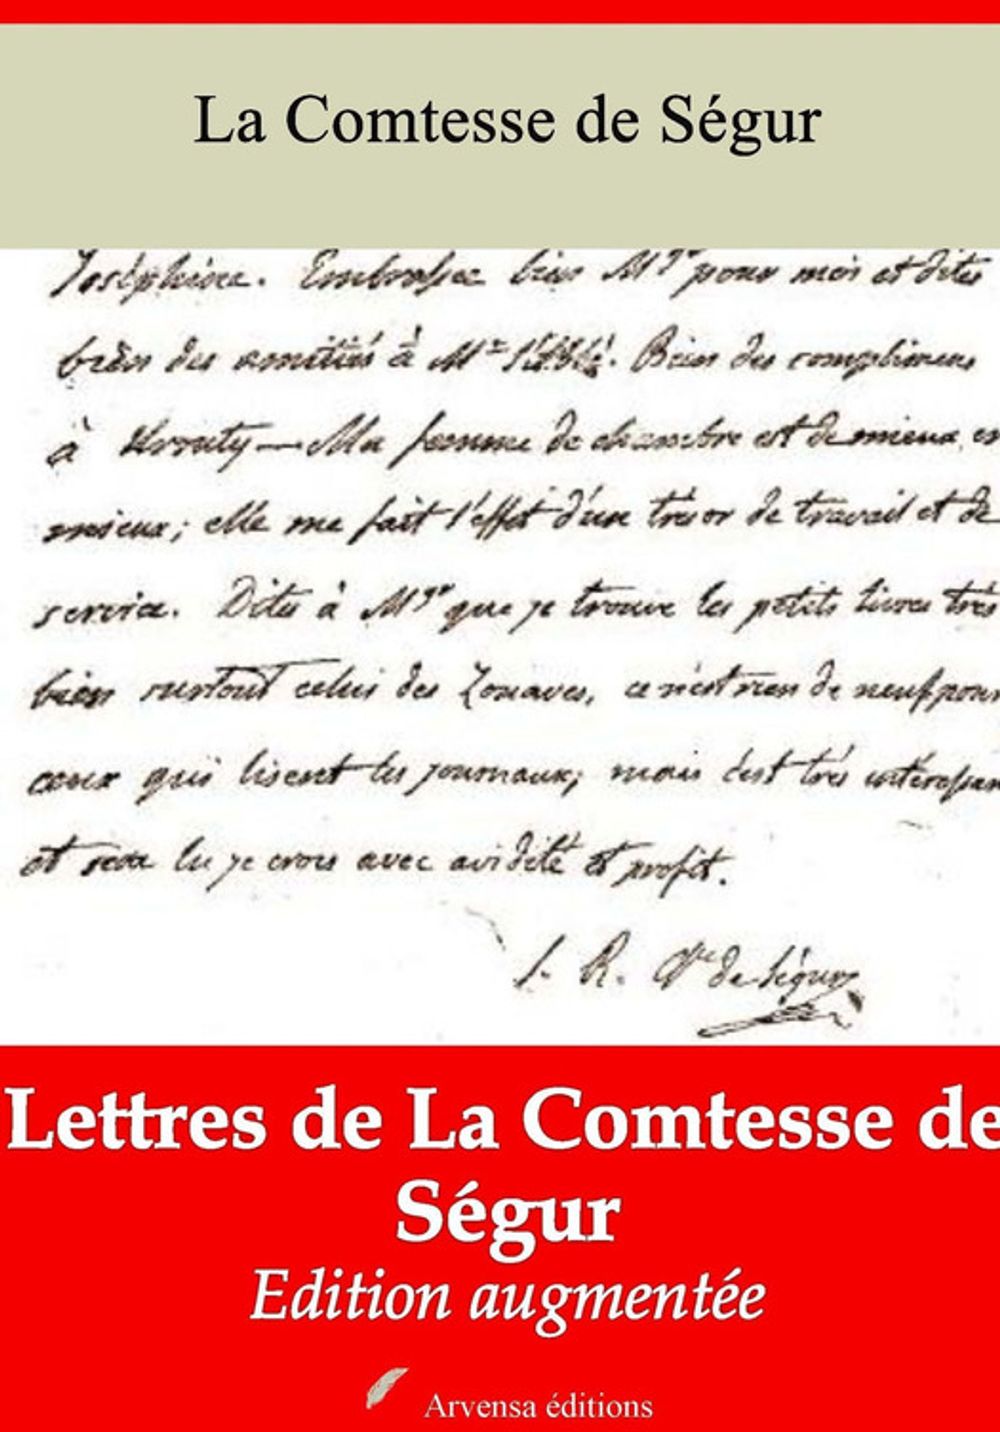 La Comtesse de Ségur
Joséphine. Embrassez bien Mgr pour moi et dites
bien des amitiés à Mr l'Abbé. Bien des complimens
à — Ma femme de chambre est de mieux en
mieux; elle me fait l'effet d'un trésor de travail et de
service. Dites à Mgr que je trouve les petits livres très
bien surtout celui des Zouaves, ce n'est rien de neuf pour
ceux qui lisent les journaux; mais c'est très intéressan
et sera lu je crois avec avidité et profit.
S. R. Ctsse de Ségur
Lettres de La Comtesse de
Ségur
Edition augmentée
Arvensa éditions